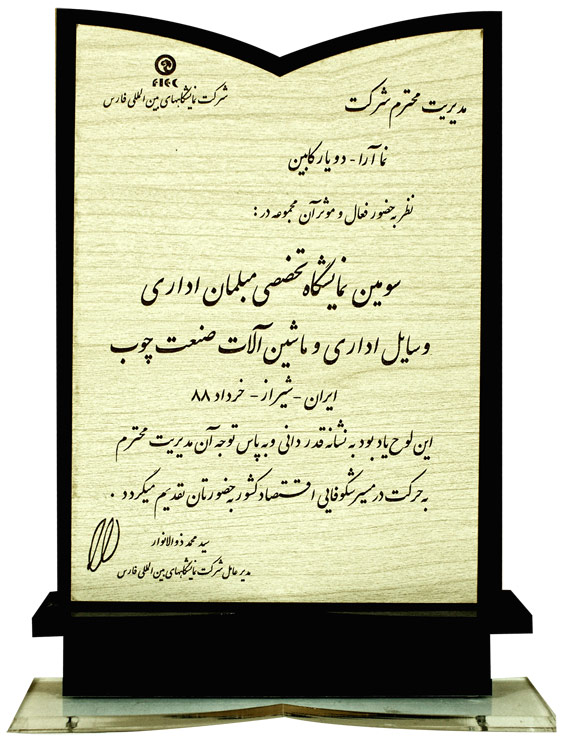 FIEC
شرکت نمایشگاههای بین المللی فارس
مدیریت محترم شرکت
نما آرا - دویار کابین
نظر به حضور فعال و موثر آن مجموعه در :
سومین نمایشگاه تخصصی مبلمان اداری
وسایل اداری و ماشین آلات صنعت چوب
ایران - شیراز - خرداد ۸۸
این لوح یاد بود به نشانه قدر دانی و به پاس توجه آن مدیریت محترم
به حرکت در مسیر شکوفایی اقتصاد کشور به حضورتان تقدیم میگردد .
سید محمد ذوالانوار
مدیر عامل شرکت نمایشگاههای بین المللی فارس